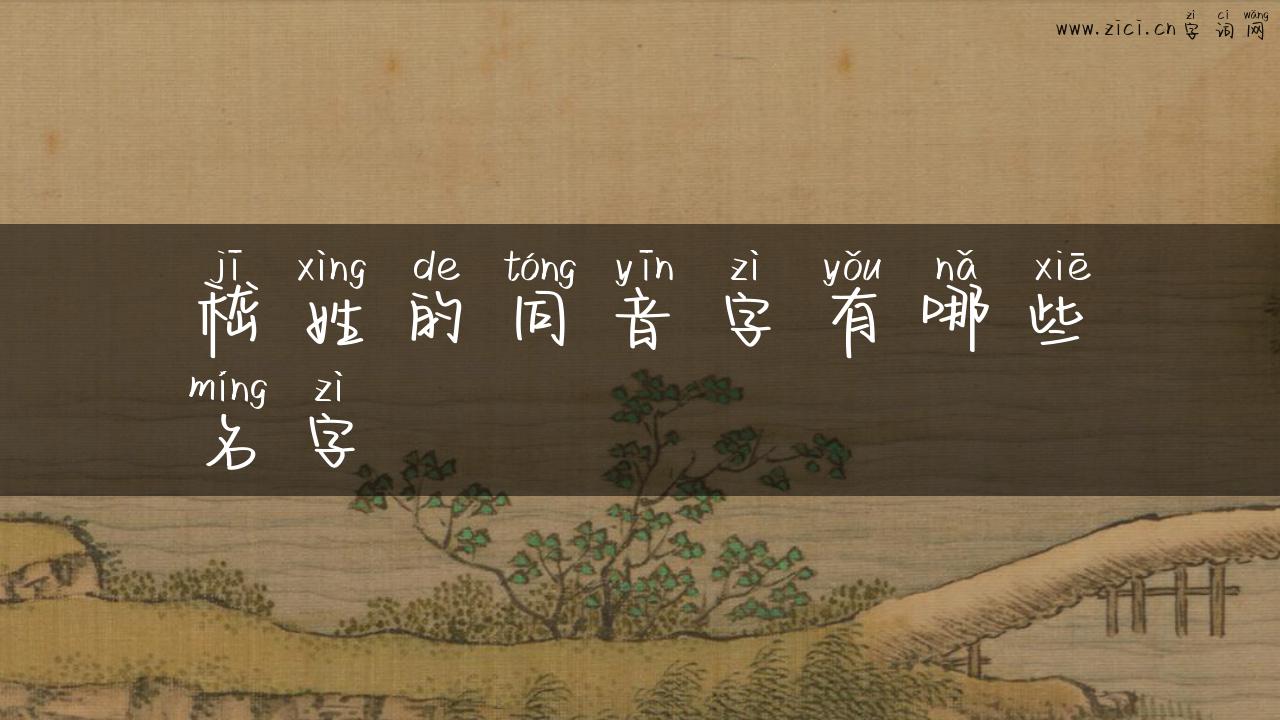 zì cí wǎng
www.zici.cn 字词网
jī xìng de tóng yīn zì yǒu nǎ xiē
嵇姓的同音字有哪些
míng zì
名字